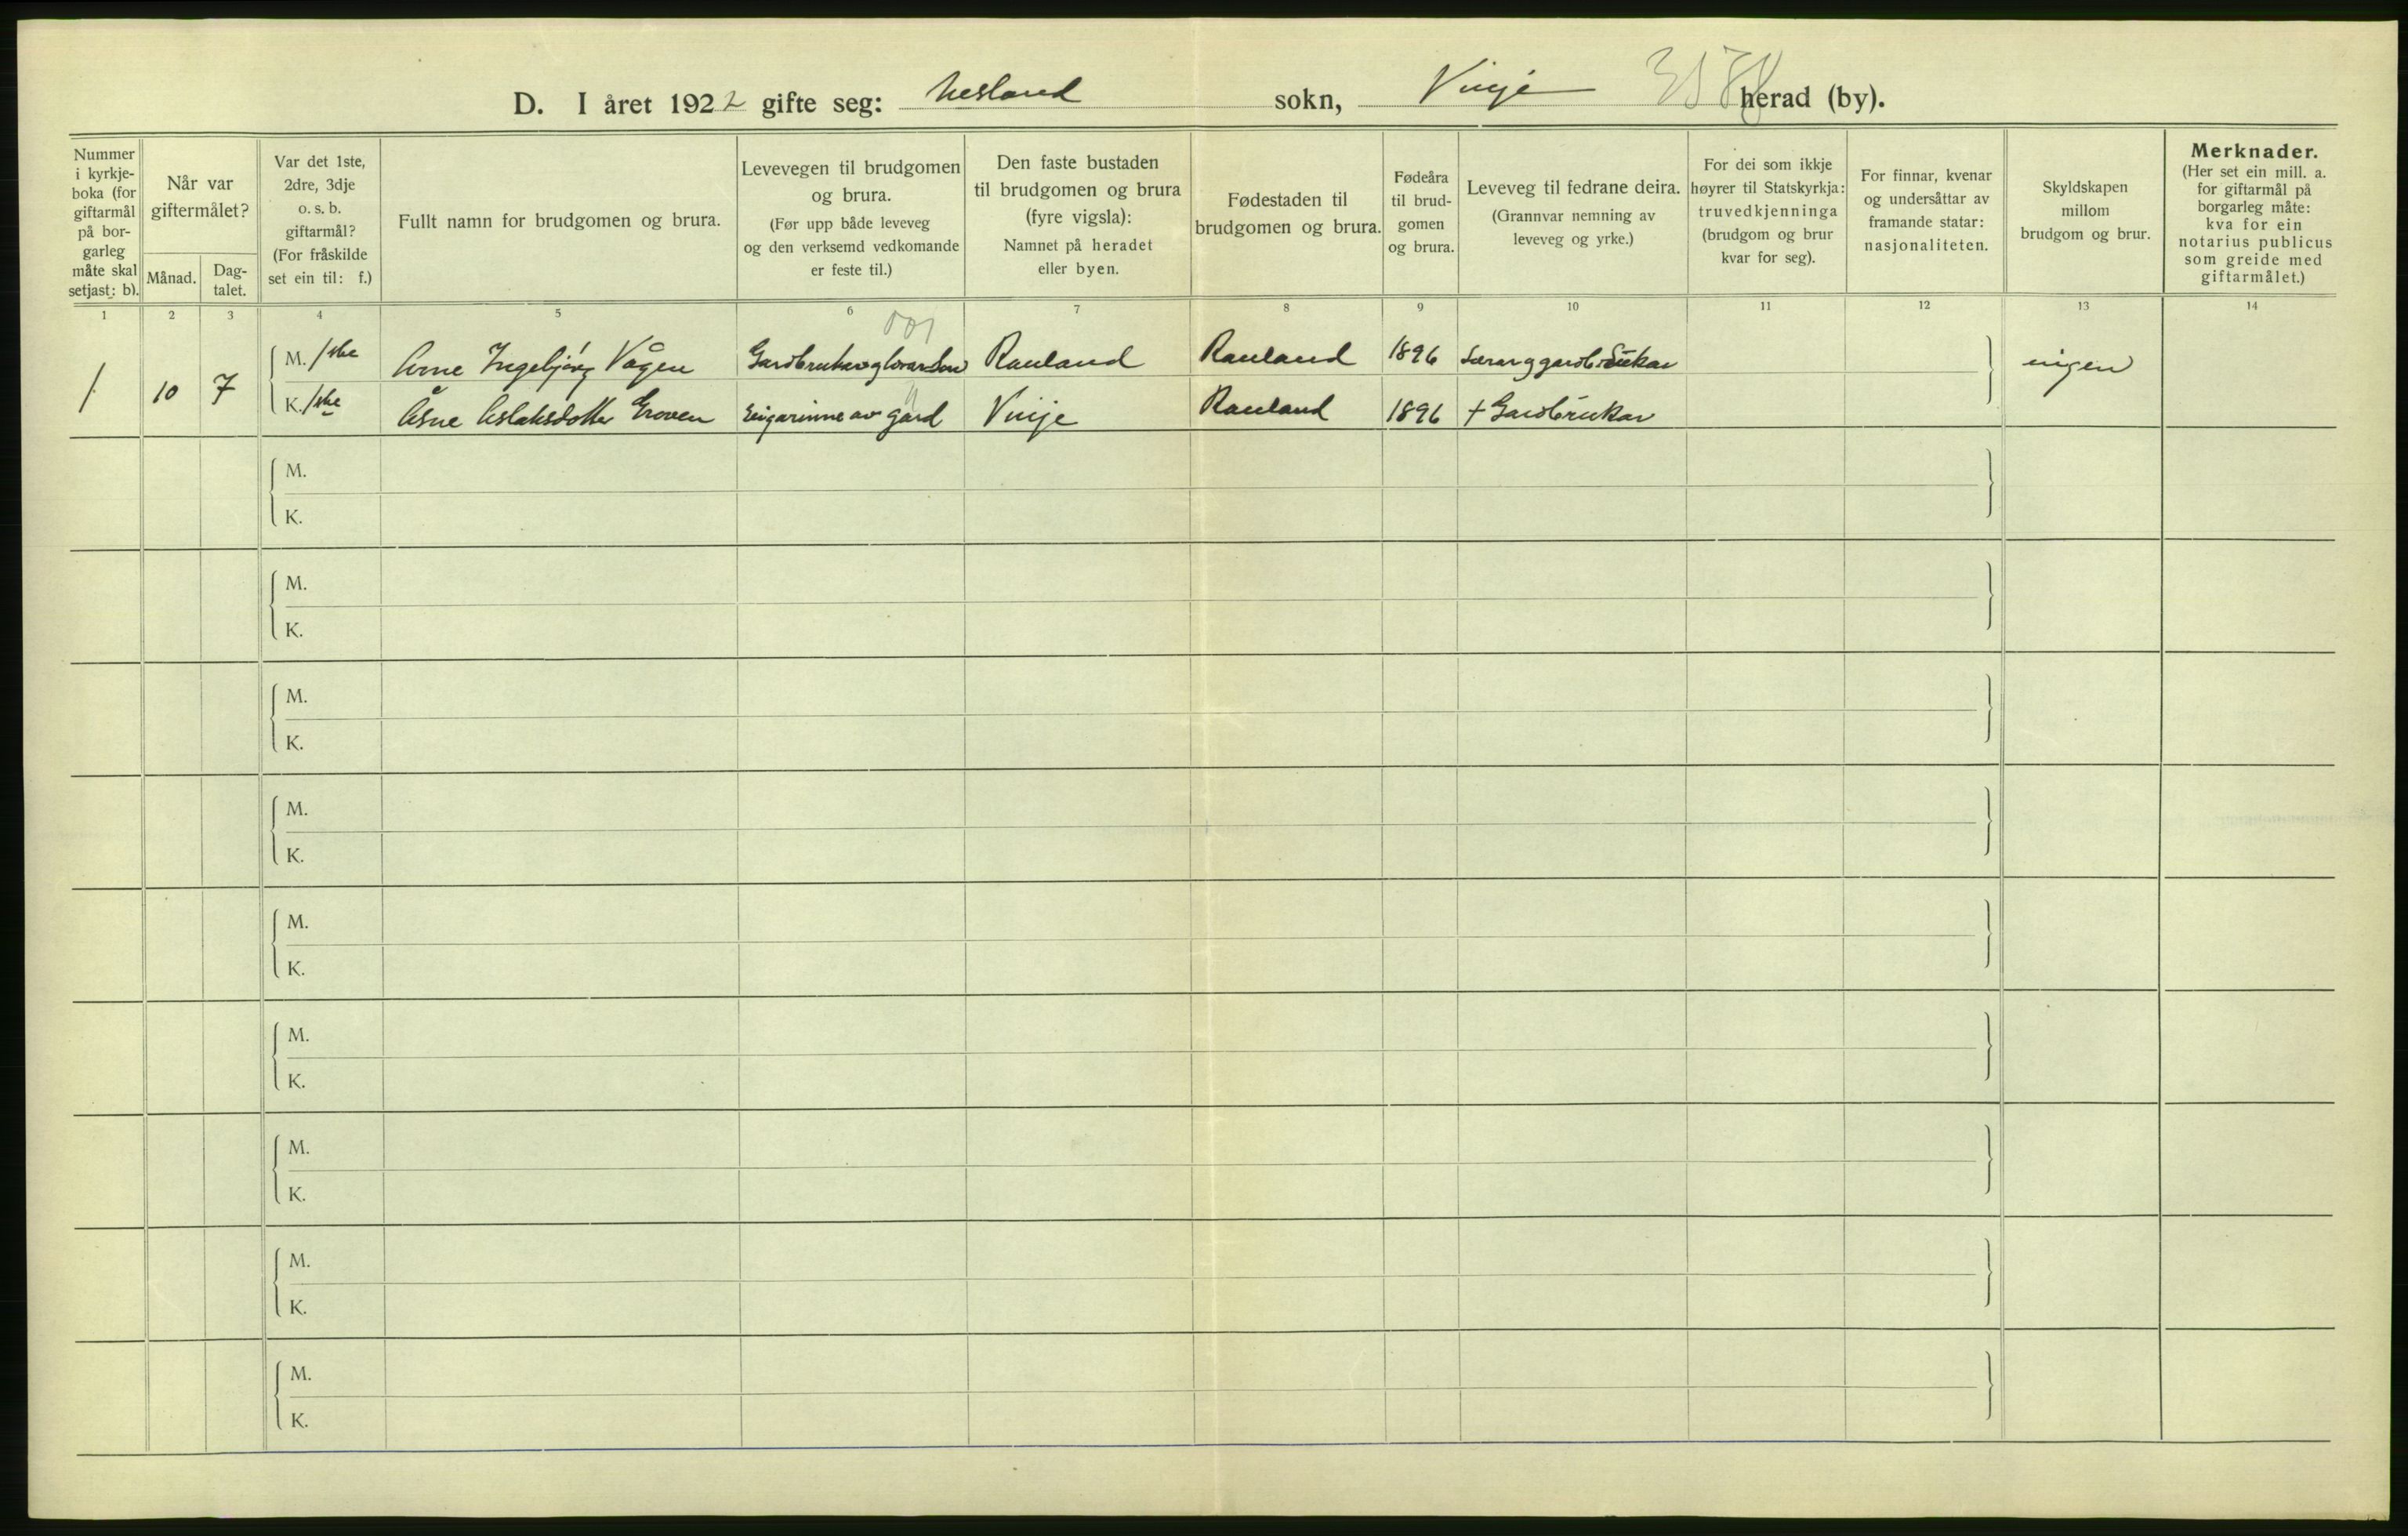 D. I året 1922 gifte seg: Nesland sokn, Vinje herad (by).
3588
Nummer i kyrkje- boka (for giftarmål på bor- garleg måte skal setjast: b).
Når var giftermålet?
Månad.
Dag- talet.
Var det 1ste, 2dre, 3dje o. s. b. giftarmål? (For fråskilde set ein til: f.)
Fullt namn for brudgomen og brura.
Levevegen til brudgomen og brura. (Før upp både leveveg og den verksemd vedkomande er feste til.)
Den faste bustaden til brudgomen og brura (fyre vigsla): Namnet på heradet eller byen.
Fødestaden til brudgomen og brura.
Fødeåra til brud- gomen og brura.
Leveveg til fedrane deira. (Grannvar nemning av leveveg og yrke.)
For dei som ikkje høyrer til Statskyrkja: truvedkjenninga (brudgom og brur kvar for seg).
For finnar, kvenar og undersåttar av framande statar: nasjonaliteten.
Skyldskapen millom brudgom og brur.
Merknader. (Her set ein mill. a. for giftarmål på borgarleg måte: kva for ein notarius publicus som greide med giftarmålet.)
1 2 3 4 5 6 7 8 9 10 11 12 13 14
001
1 10 7 M. 1ste Arne Ingebjørg Vågen Gardbrukar og Rauland Rauland 1896 Lærar og gardbrukar ingen
K. 1ste Åsne Aslaksdotter Groven Eigarinne av gard Vinje Rauland 1896 + Gardbrukar
M.
K.
M.
K.
M.
K.
M.
K.
M.
K.
M.
K.
M.
K.
M.
K.
M.
K.